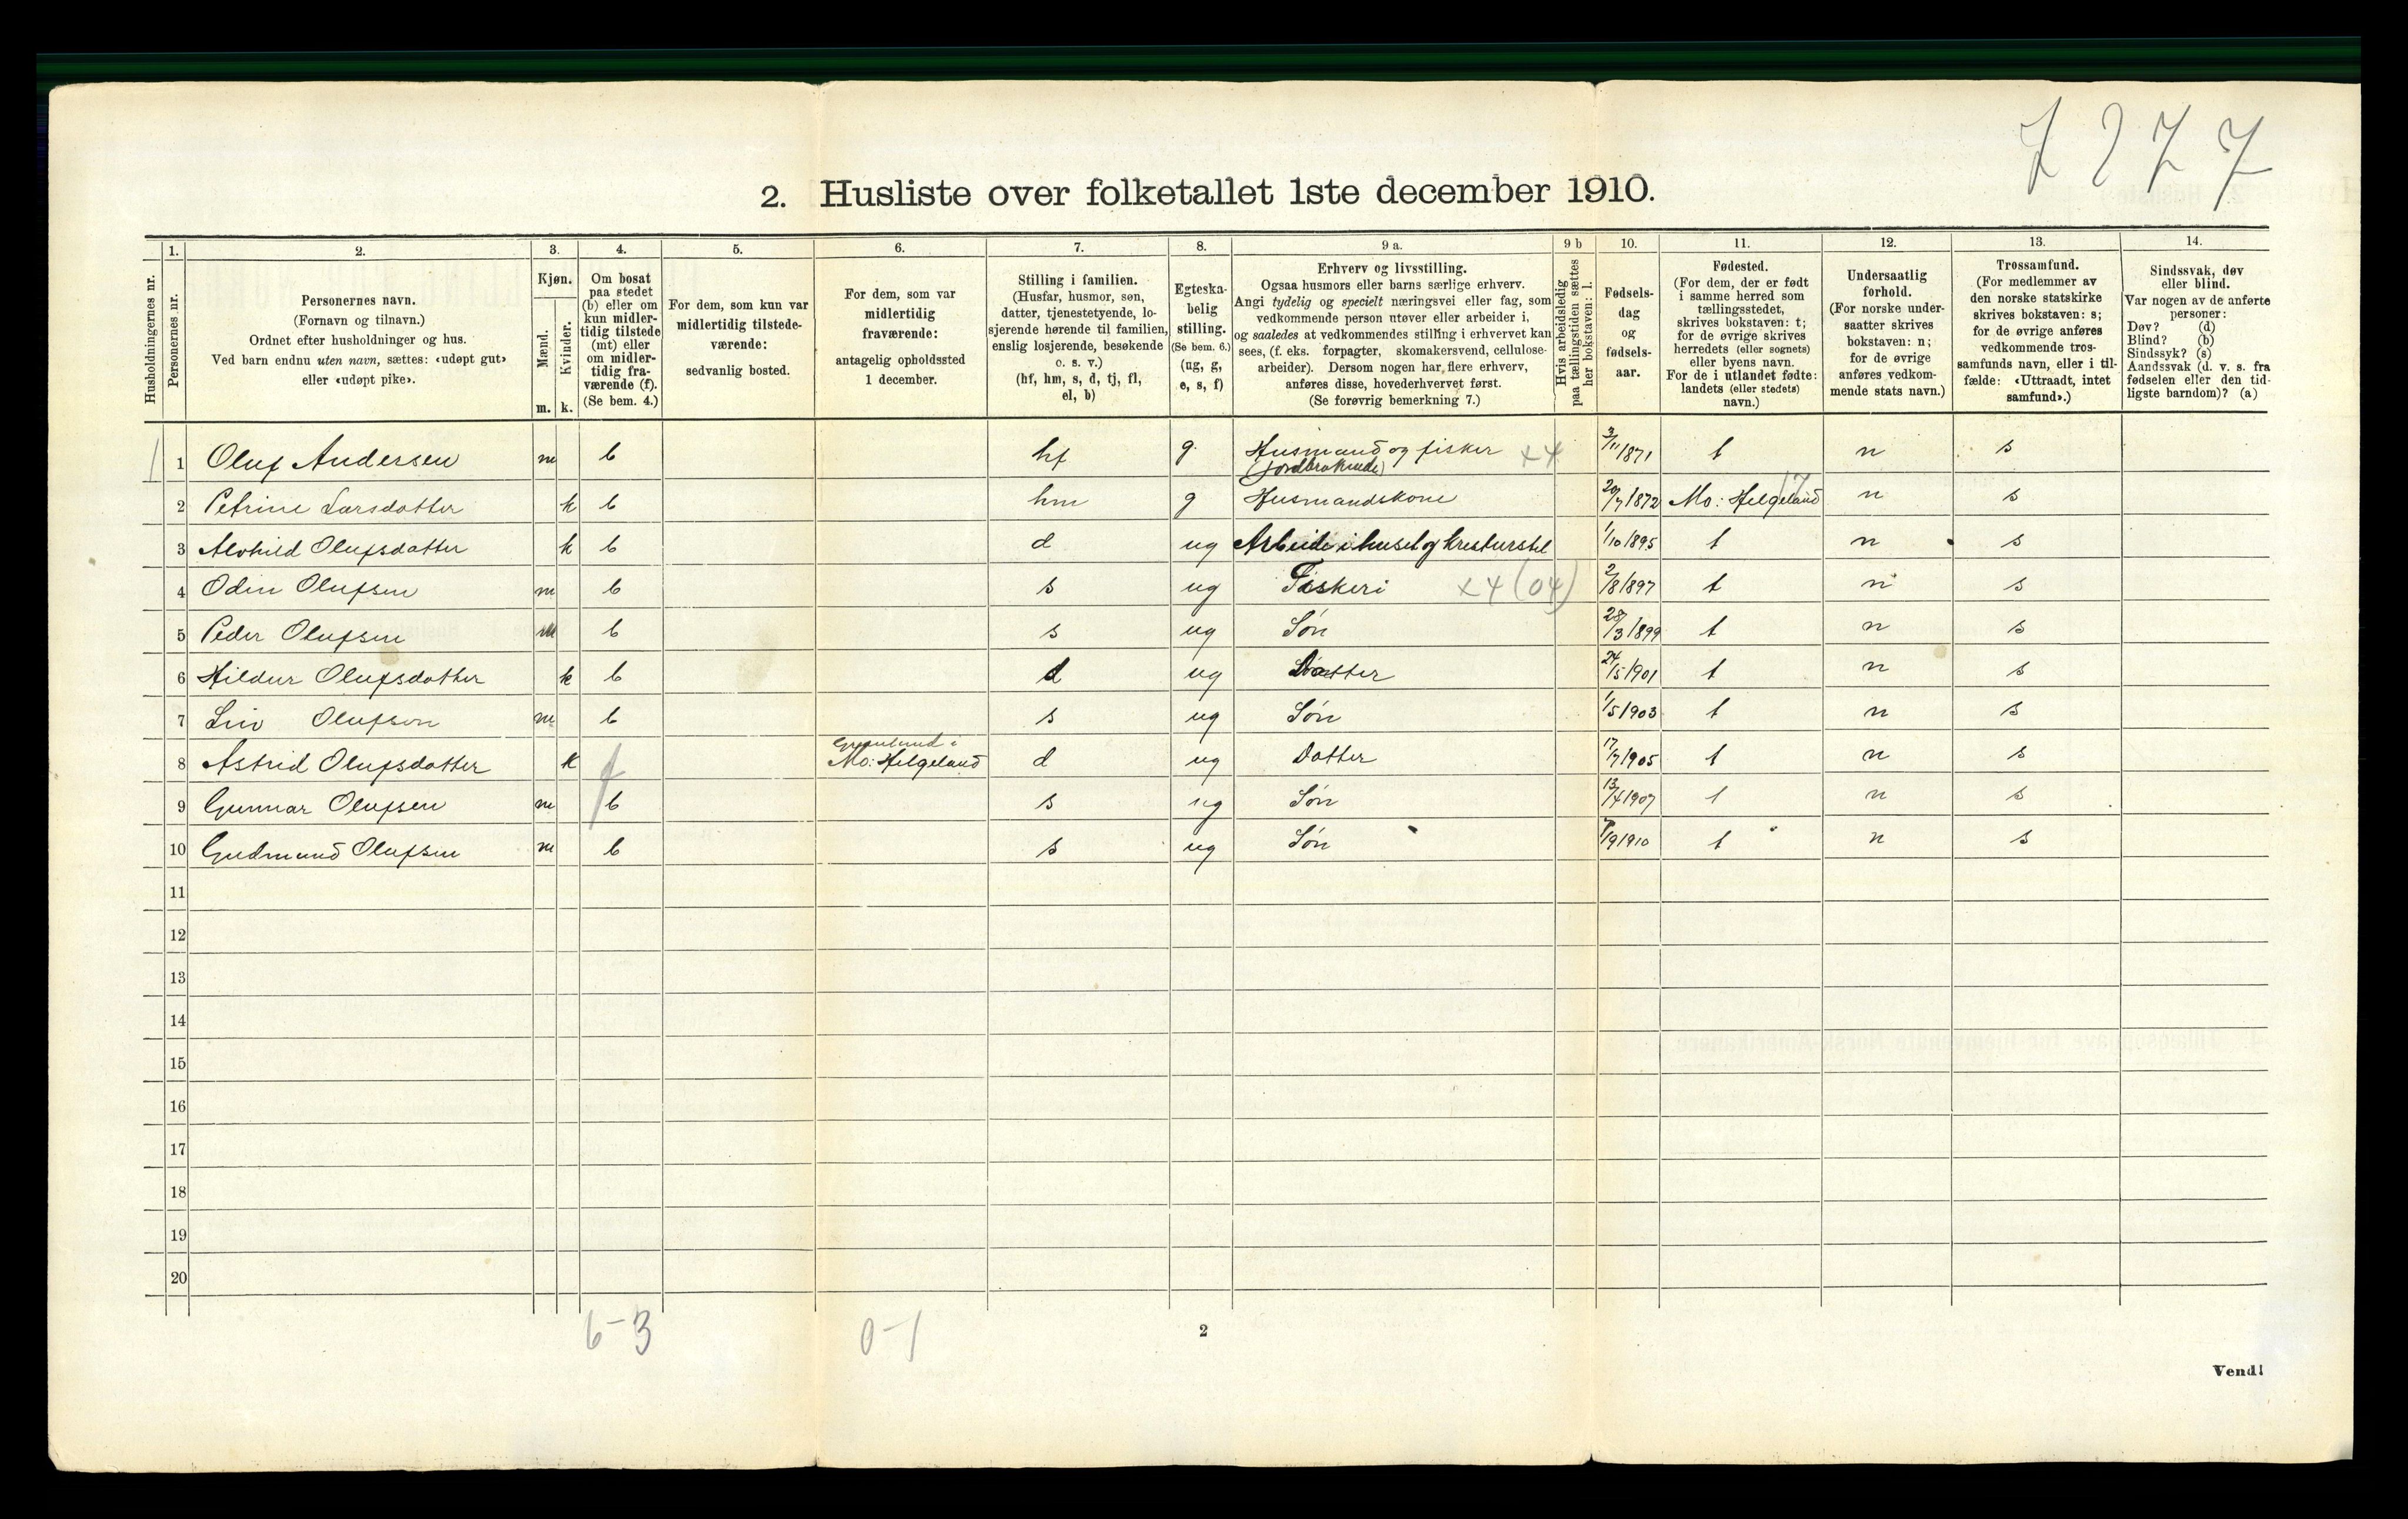 7 2 7 7
2. Husliste over folketallet 1ste december 1910.
Husholdningernes nr.
1. Personernes nr.
2. Personernes navn. (Fornavn og tilnavn.) Ordnet efter husholdninger og hus. Ved barn endnu uten navn, sættes: «udøpt gut» eller «udøpt pike».
3. Kjøn. Mænd. m. Kvinder. k.
4. Om bosat paa stedet (b) eller om kun midlertidig tilstede (mt) eller om midlertidig fraværende (f). (Se bem. 4.)
5. For dem, som kun var midlertidig tilstedeværende: sedvanlig bosted.
6. For dem, som var midlertidig fraværende: antagelig opholdssted 1 december.
7. Stilling i familien. (Husfar, husmor, søn, datter, tjenestetyende, losjerende hørende til familien, enslig losjerende, besøkende o. s. v.) (hf, hm, s, d, tj, fl, el, b)
8. Egteskabelig stilling. (Se bem. 6.) (ug, g, e, s, f)
9 a. Erhverv og livsstilling. Ogsaa husmors eller barns særlige erhverv. Angi tydelig og specielt næringsvei eller fag, som vedkommende person utøver eller arbeider i, og saaledes at vedkommendes stilling i erhvervet kan sees, (f. eks. forpagter, skomakersvend, cellulosearbeider). Dersom nogen har flere erhverv, anføres disse, hovederhvervet først. (Se forøvrig bemerkning 7.)
9 b Hvis arbeidsledig paa tællingstiden sættes her bokstaven: l.
10. Fødselsdag og fødselsaar.
11. Fødested. (For dem, der er født i samme herred som tællingsstedet, skrives bokstaven: t; for de øvrige skrives herredets (eller sognets) eller byens navn. For de i utlandet fødte: landets (eller stedets) navn.)
12. Undersaatlig forhold. (For norske undersaatter skrives bokstaven: n; for de øvrige anføres vedkommende stats navn.)
13. Trossamfund. (For medlemmer av den norske statskirke skrives bokstaven: s; for de øvrige anføres vedkommende trossamfunds navn, eller i tilfælde: «Uttraadt, intet samfund».)
14. Sindssvak, døv eller blind. Var nogen av de anførte personer: Døv? (d) Blind? (b) Sindssyk? (s) Aandssvak (d. v. s. fra fødselen eller den tidligste barndom)? (a)
1 1 Oluf Andersen m b hf g. Husmand og fisker (jordbrukende) x4 3/11 1871 t n s
2 Petrine Larsdatter k b hm g Husmandskone 20/7 1872 Mo: Helgeland 17 n s
3 Alvhild Olufsdatter k b d ug Arbeide i huset og kreaturstel 1/10 1895 t n s
4 Odin Olufsen m b s ug Fiskeri x4 (04) 2/8 1897 t n s
5 Peder Olufsen m b s ug Søn 28/3 1899 t n s
6 Hildur Olufsdatter k b d ug Datter 24/5 1901 t n s
7 Olufsen m b s ug Søn 1/5 1903 t n s
8 Astrid Olufsdatter k f Mo: Helgeland d ug Datter 17/7 1905 t n s
9 Gunnar Olufsen m b s ug Søn 13/4 1907 t n s
10 Gudmund Olufsen m b s ug Søn 7/9 1910 t n s
11
12
13
14
15
16
17
18
19
20
6-3 0-1
2
Vend!